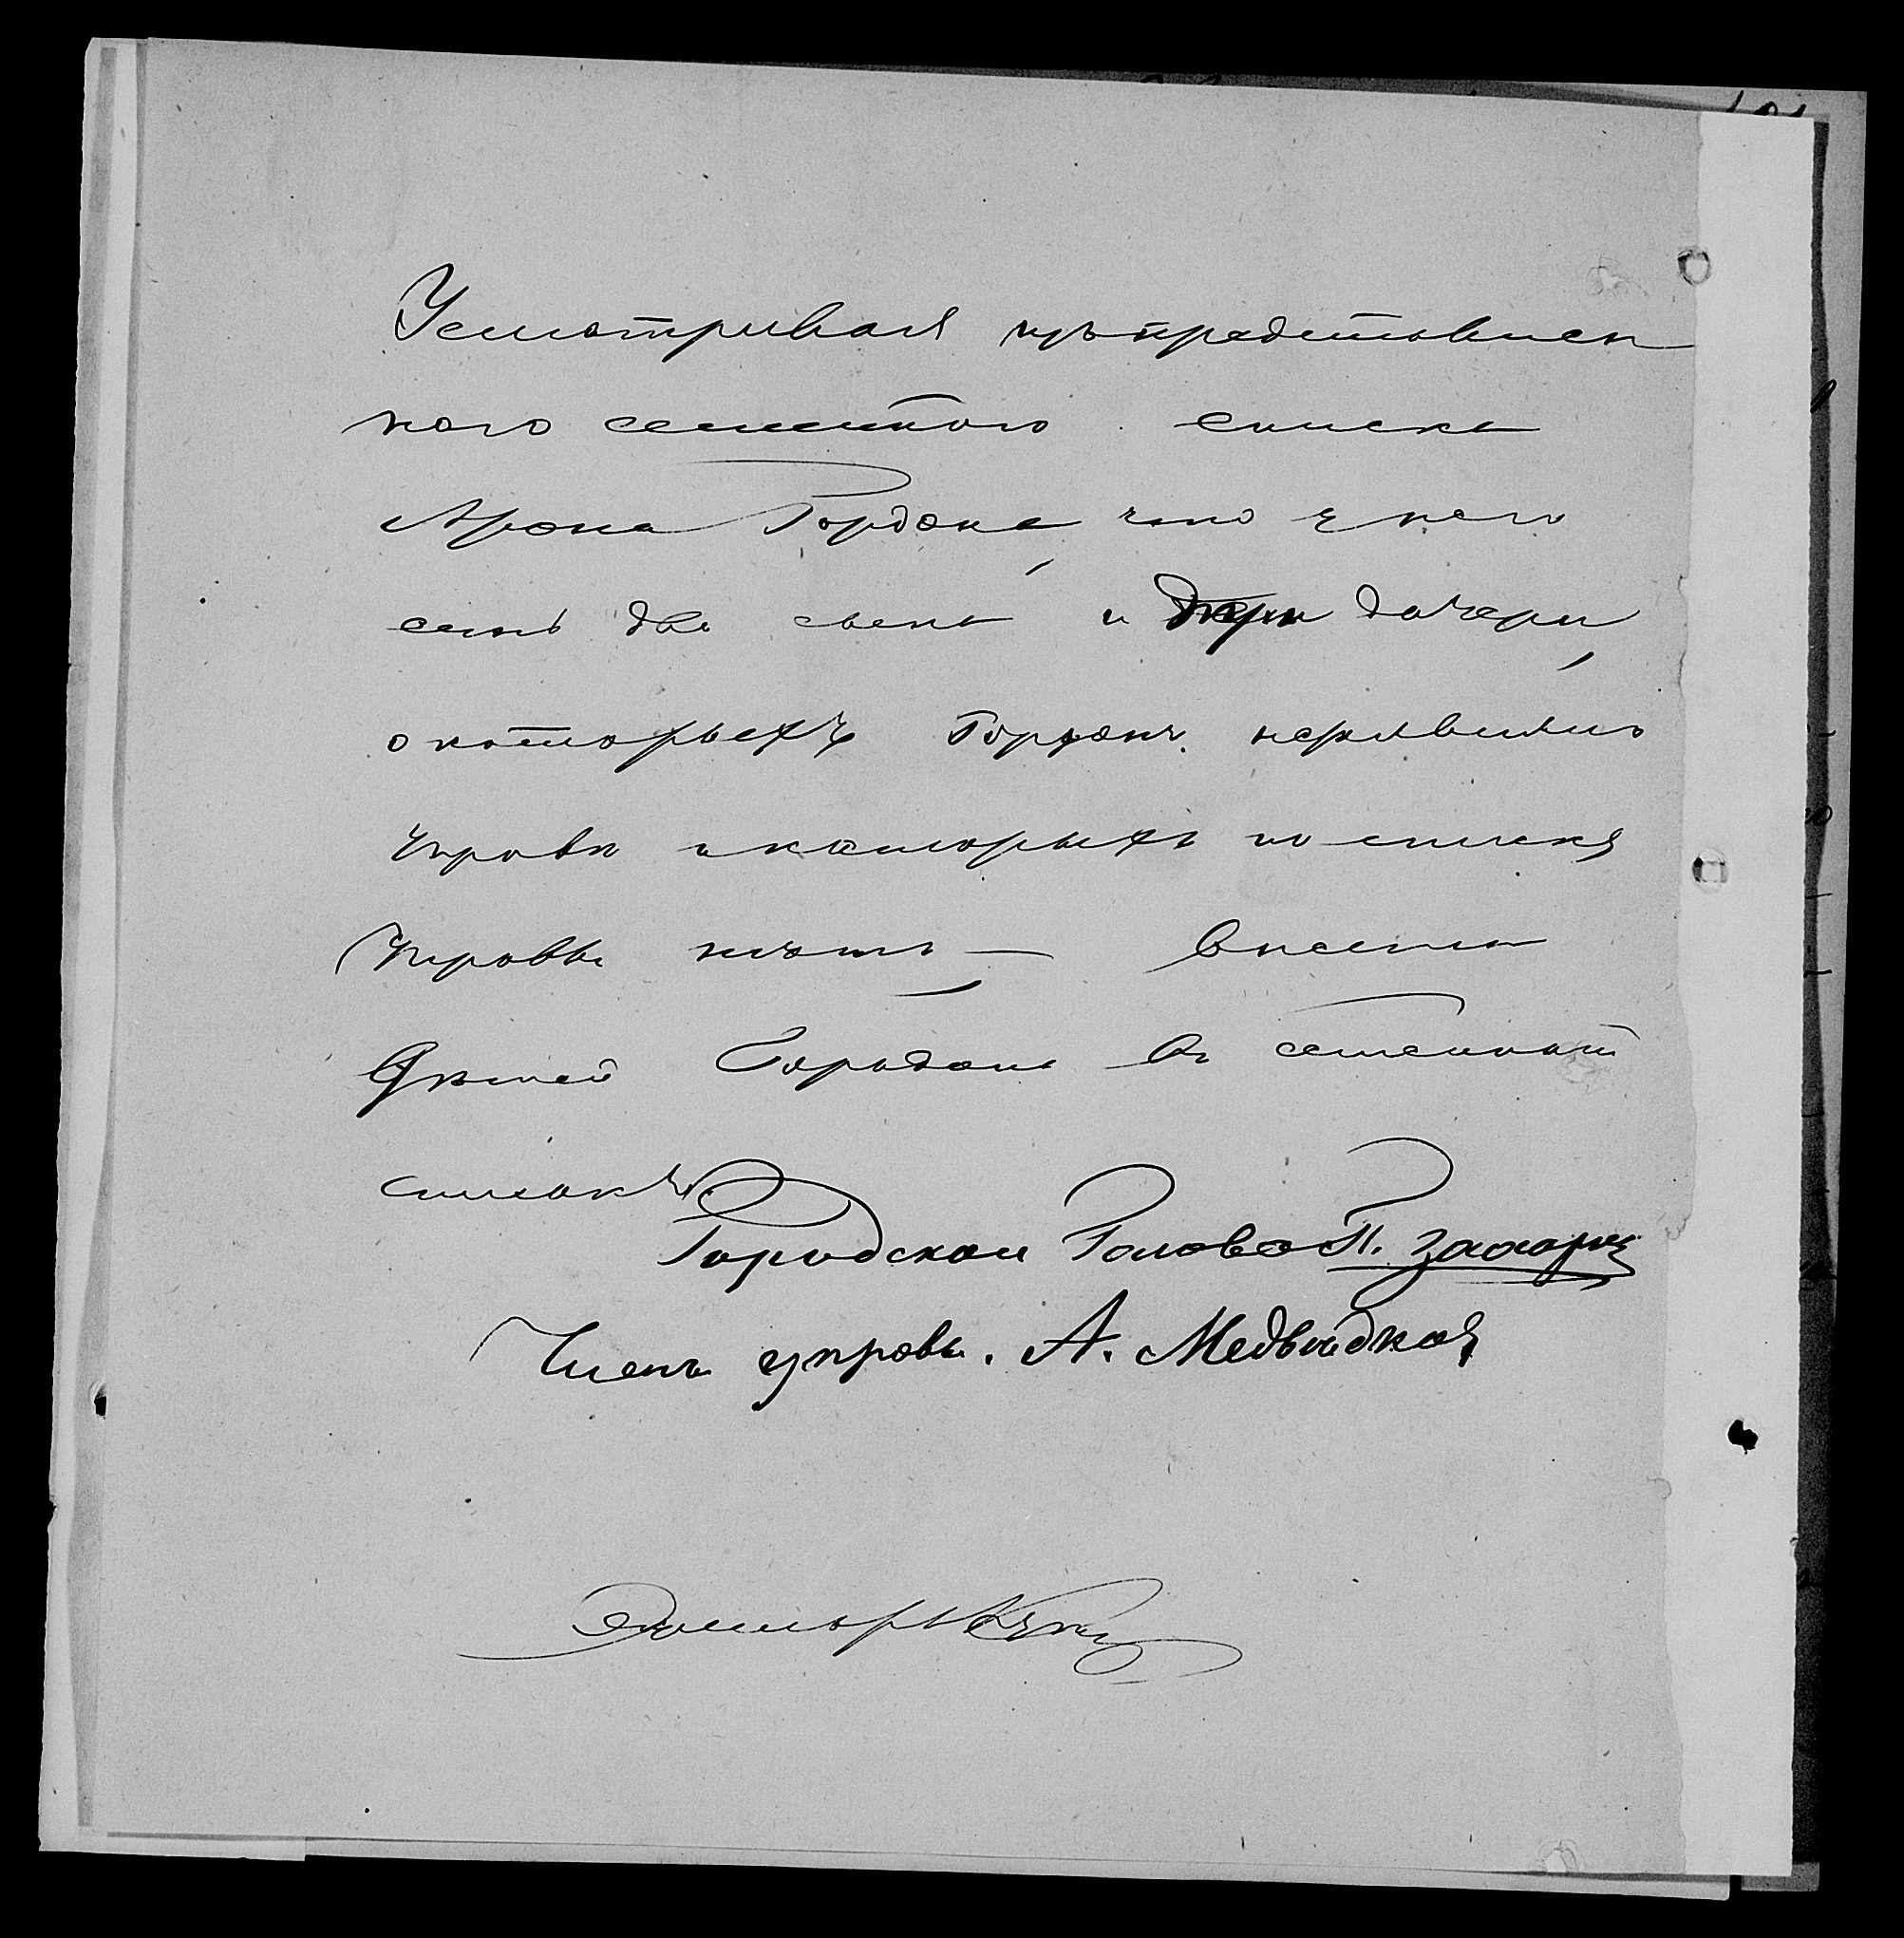 Усматривая изъ представлен
наго семейнаго списка
Арона Гордона, что у него
есть два сына и три дочери,
о которыхъ Гордонъ незаявилъ
Управѣ и которыхъ по списку
Управы нѣтъ, — внести
дѣтей Гордона въ семейный
списокъ.
Городской Голова П.
Членъ управы. А. Медвѣдков